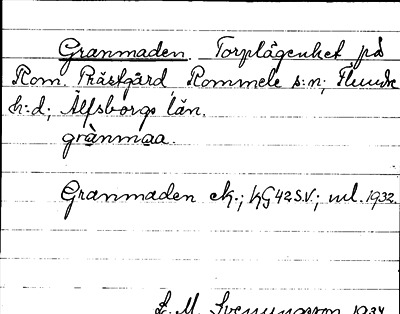 Granmaden. Torplägenhet på
Rom. Prästgård Rommele s:n; Flundre
h:d; Älfsborgs län.
grànmaa.
Granmaden ek.; kG 42 S.V.; uel. 1932.
L. M. Svenungsson 1934